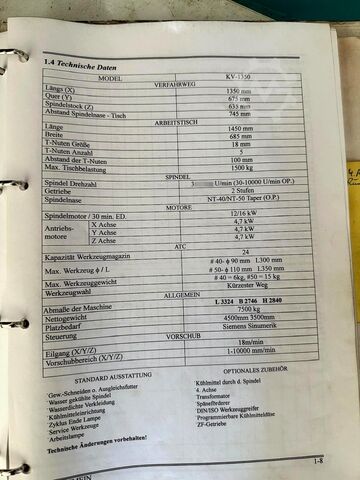 1.4 Technische Daten
MODEL KV-1350
VERFAHRWEG
Längs (X) 1350 mm
Quer (Y) 675 mm
Spindelstock (Z) 635 mm
Abstand Spindelnase - Tisch 745 mm
ARBEITSTISCH
Länge 1450 mm
Breite 685 mm
T-Nuten Größe 18 mm
T-Nuten Anzahl 5
Abstand der T-Nuten 100 mm
Max. Tischbelastung 1500 kg
SPINDEL
Spindel Drehzahl U/min (30-10000 U/min OP.)
Getriebe 2 Stufen
Spindelnase NT-40/NT-50 Taper (O.P.)
MOTORE
Spindelmotor / 30 min. ED. 12/16 kW
Antriebs- X Achse 4,7 kW
motore Y Achse 4,7 kW
Z Achse 4,7 kW
ATC
Kapazität Werkzeugmagazin 24
Max. Werkzeug ϕ / L # 40- ϕ 90 mm 1.300 mm
# 50- ϕ 110 mm 1.350 mm
Max. Werkzeuggewicht # 40 = 6kg, #50 = 15 kg
Werkzeugwahl Kürzester Weg
ALLGEMEIN
Abmaße der Maschine L 3324 B 2746 H 2840
Nettogewicht 7500 kg
Platzbedarf 4500mm 3500mm
Steuerung Siemens Sinumerik
VORSCHUB
Eilgang (X/Y/Z) 18m/min
Vorschubbereich (X/Y/Z) 1-10000 mm/min
STANDARD AUSSTATTUNG
Gew.-Schneiden o. Ausgleichsfutter
Wasser gekühlte Spindel
Wasserdichte Verkleidung
Kühlmitteleinrichtung
Zyklus Ende Lampe
Service Werkzeuge
Arbeitslampe
Technische Änderungen vorbehalten!
OPTIONALES ZUBEHÖR
Kühlmittel durch d. Spindel
4. Achse
Transformator
Späneförderer
DIN/ISO Werkzeuggreifer
Programmierbare Kühlmitteldüse
ZF-Getriebe
1-8